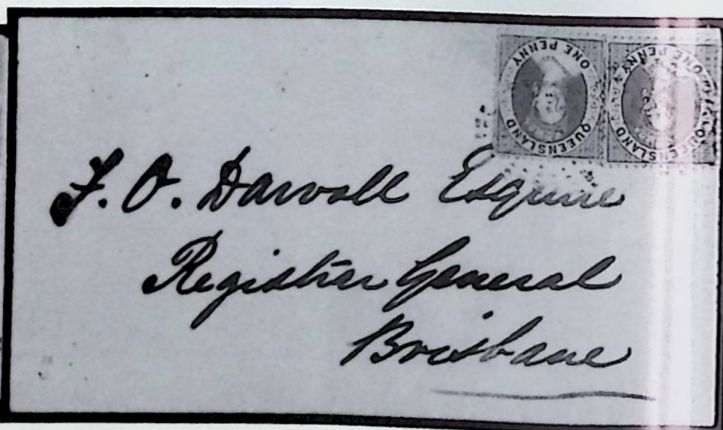 QUEENSLAND ONE PENNY
QUEENSLAND ONE PENNY
F. O. Darvall Esquire
Registrar General
Brisbane